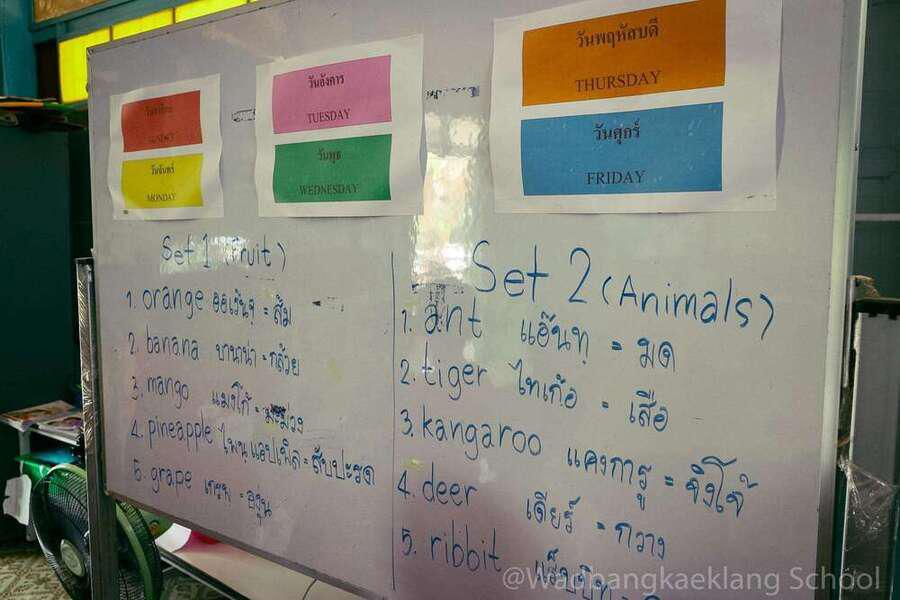 วันอาทิตย์
SUNDAY
วันจันทร์
MONDAY
วันอังคาร
TUESDAY
วันพุธ
WEDNESDAY
วันพฤหัสบดี
THURSDAY
วันศุกร์
FRIDAY
Set 1 (Fruit)
1. orange ออเร้นจฺ = ส้ม
2. banana บานาน่า = กล้วย
3. mango แมงโก้ = มะม่วง
4. pineapple ไพนฺแอปเปิล = สับปะรด
5. grape เกรพ = องุ่น
Set 2 (Animals)
1. ant แอ๊นทฺ = มด
2. tiger ไทเก้อ = เสือ
3. kangaroo แคงการู = จิงโจ้
4. deer เดียร์ = กวาง
5. ribbit
@Watbangkaeklang School